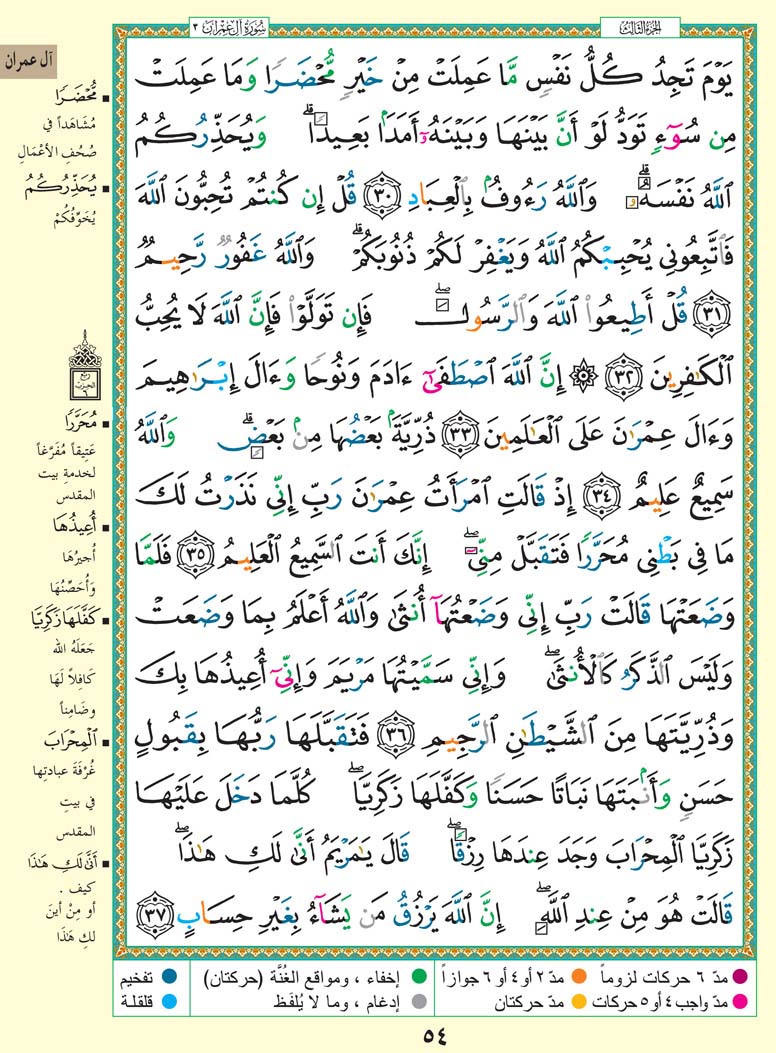 سُورَةُ آلِ عِمْرَان ٣
الجزء الثالث
يَوْمَ تَجِدُ كُلُّ نَفْسٍ مَّا عَمِلَتْ مِنْ خَيْرٍ مُّحْضَرًا وَمَا عَمِلَتْ
مِن سُوٓءٍ تَوَدُّ لَوْ أَنَّ بَيْنَهَا وَبَيْنَهُۥٓ أَمَدًۢا بَعِيدًاۗ وَيُحَذِّرُكُمُ
ٱللَّهُ نَفْسَهُۥۗ وَٱللَّهُ رَءُوفُۢ بِٱلْعِبَادِ ﴿٣٠﴾ قُلْ إِن كُنتُمْ تُحِبُّونَ ٱللَّهَ
فَٱتَّبِعُونِى يُحْبِبْكُمُ ٱللَّهُ وَيَغْفِرْ لَكُمْ ذُنُوبَكُمْۗ وَٱللَّهُ غَفُورٌ رَّحِيمٌ
﴿٣١﴾ قُلْ أَطِيعُوا۟ ٱللَّهَ وَٱلرَّسُولَۖ فَإِن تَوَلَّوْا۟ فَإِنَّ ٱللَّهَ لَا يُحِبُّ
ٱلْكَٰفِرِينَ ﴿٣٢﴾ ۞ إِنَّ ٱللَّهَ ٱصْطَفَىٰٓ ءَادَمَ وَنُوحًا وَءَالَ إِبْرَٰهِيمَ
وَءَالَ عِمْرَٰنَ عَلَى ٱلْعَٰلَمِينَ ﴿٣٣﴾ ذُرِّيَّةًۢ بَعْضُهَا مِنۢ بَعْضٍۗ وَٱللَّهُ
سَمِيعٌ عَلِيمٌ ﴿٣٤﴾ إِذْ قَالَتِ ٱمْرَأَتُ عِمْرَٰنَ رَبِّ إِنِّى نَذَرْتُ لَكَ
مَا فِى بَطْنِى مُحَرَّرًا فَتَقَبَّلْ مِنِّىٓۖ إِنَّكَ أَنتَ ٱلسَّمِيعُ ٱلْعَلِيمُ ﴿٣٥﴾ فَلَمَّا
وَضَعَتْهَا قَالَتْ رَبِّ إِنِّى وَضَعْتُهَآ أُنثَىٰ وَٱللَّهُ أَعْلَمُ بِمَا وَضَعَتْ
وَلَيْسَ ٱلذَّكَرُ كَٱلْأُنثَىٰۖ وَإِنِّى سَمَّيْتُهَا مَرْيَمَ وَإِنِّىٓ أُعِيذُهَا بِكَ
وَذُرِّيَّتَهَا مِنَ ٱلشَّيْطَٰنِ ٱلرَّجِيمِ ﴿٣٦﴾ فَتَقَبَّلَهَا رَبُّهَا بِقَبُولٍ
حَسَنٍ وَأَنۢبَتَهَا نَبَاتًا حَسَنًا وَكَفَّلَهَا زَكَرِيَّاۖ كُلَّمَا دَخَلَ عَلَيْهَا
زَكَرِيَّا ٱلْمِحْرَابَ وَجَدَ عِندَهَا رِزْقًاۖ قَالَ يَٰمَرْيَمُ أَنَّىٰ لَكِ هَٰذَاۖ
قَالَتْ هُوَ مِنْ عِندِ ٱللَّهِۖ إِنَّ ٱللَّهَ يَرْزُقُ مَن يَشَآءُ بِغَيْرِ حِسَابٍ ﴿٣٧﴾
آل عمران
مُّحْضَرًا
مُشَاهَداً في
صُحُفِ الأَعْمَالِ
يُحَذِّرُكُمُ
يُخَوِّفُكُمْ
ربع
الحزب
٦
مُحَرَّرًا
عَتِيقاً مُفَرَّغاً
لخدمةِ بيت
المقدس
أُعِيذُهَا
أُجِيرُهَا
وَأُحَصِّنُهَا
كَفَّلَهَا زَكَرِيَّا
جَعَلَهُ الله
كَافِلاً لَهَا
وضَامِناً
ٱلْمِحْرَابَ
غُرْفَةَ عبادتِها
في بيتِ
المقدس
أَنَّىٰ لَكِ هَٰذَا
كيف .
أو مِنْ أينَ
لكِ هَٰذَا
مدّ ٦ حركات لزوماً مدّ ٢ أو ٤ أو ٦ جوازاً إخفاء ، ومواقع الغُنَّة (حركتان) تفخيم
مدّ واجب ٤ أو ٥ حركات مدّ حركتان إدغام ، وما لا يُلفَظ قلقلة
٥٤